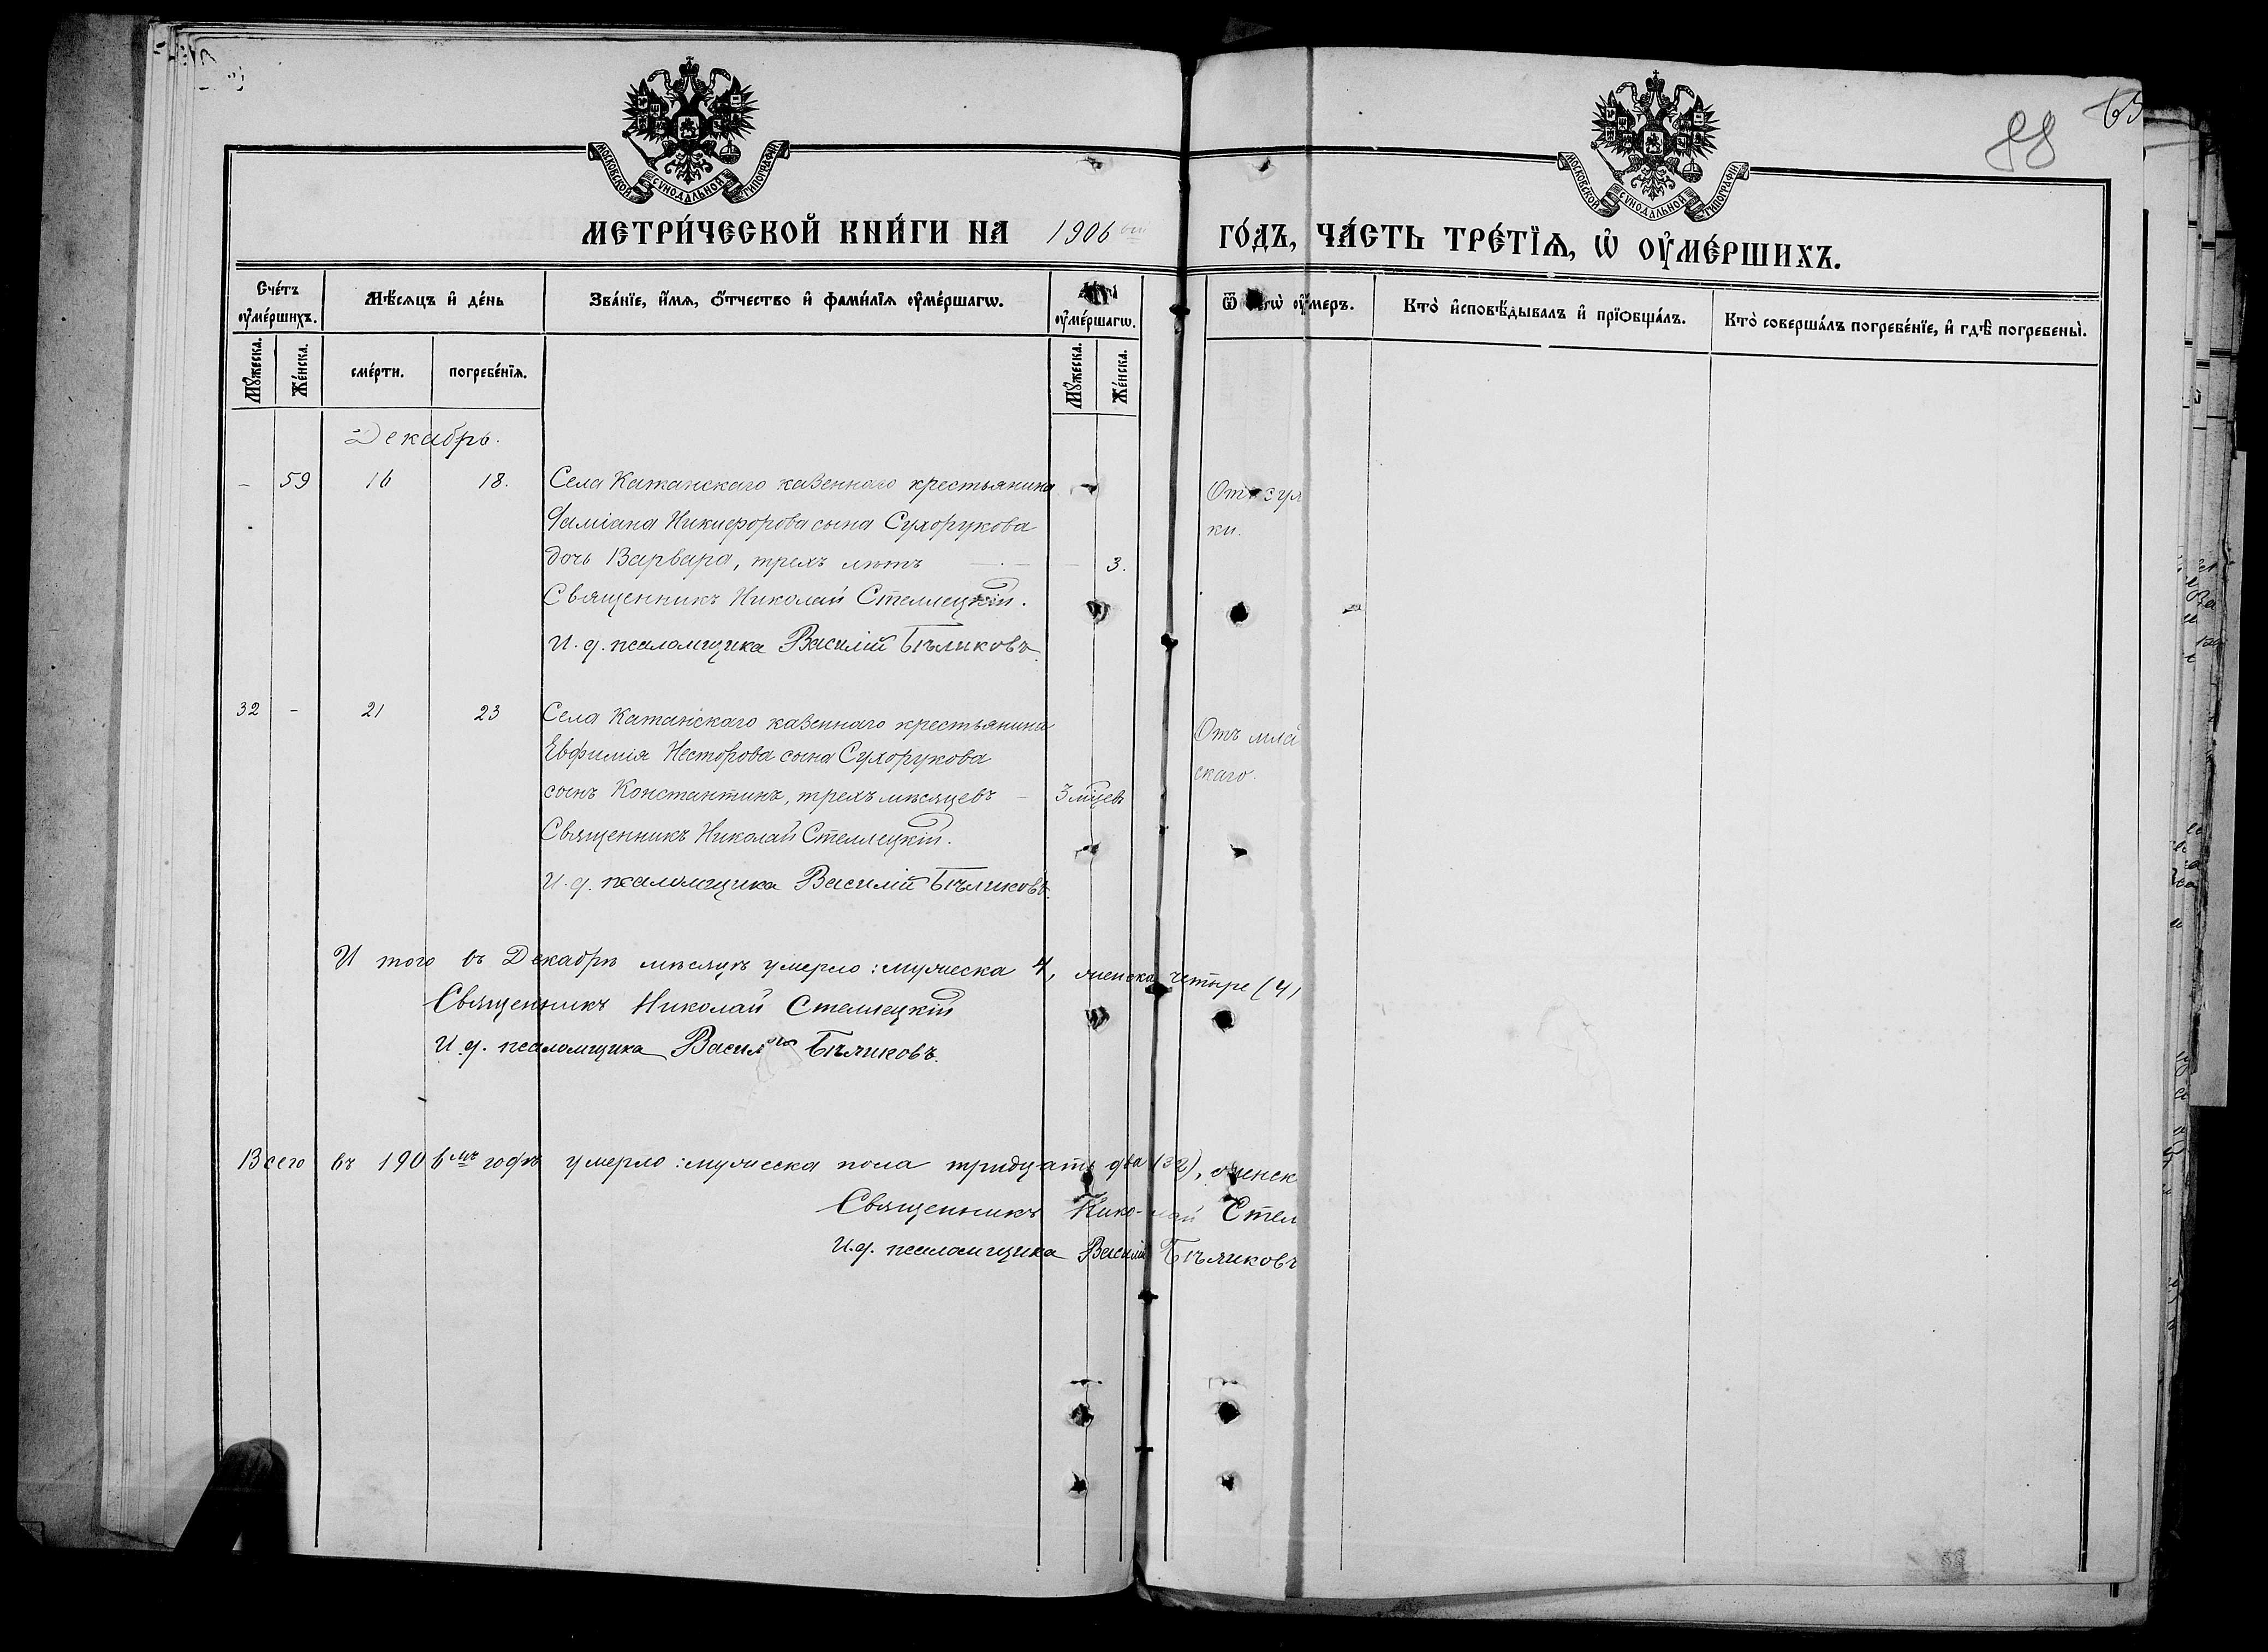 МОСКОВСКОЙ СѴНОДАЛЬНОЙ ТИПОГРАФІИ
МОСКОВСКОЙ СѴНОДАЛЬНОЙ ТИПОГРАФІИ
88
МЕТРИ́ЧЕСКОЙ КНИ́ГИ НА 1906 ГО́ДЪ, ЧА́СТЬ ТРЕ́ТЇѦ, Ѡ҆ ОУ҆МЕ́РШИХЪ.
Сче́тъ оу҆ме́ршихъ.
Мѣ́сяцъ и҆ де́нь
Зва́нїе, и҆́мя, ѻ҆́тчество и҆ фами́лїя оу҆ме́ршагѡ.
оу҆ме́ршагѡ.
Ѿ оу҆́меръ.
Кто̀ и҆сповѣ́дывалъ и҆ прїѻбща́лъ.
Кто̀ соверша́лъ погребе́нїе, и҆ гдѣ̀ погребены̀.
Мꙋ́жеска.
Же́нска.
сме́рти.
погребе́нїя.
Мꙋ́жеска.
Же́нска.
Декабрь.
- 59 16 18. Села Катанскаго казеннаго крестьянина
Даміана Никифорова сына Сухорукова
дочь Варвара, трехъ лѣтъ — 3.
Священникъ Николай Стеллецкій.
И. д. псаломщика Василій Бѣликовъ.
ки.
32 - 21 23 Села Катанскаго казеннаго крестьянина
Евфимія Несторова сына Сухорукова
сынъ Константинъ, трехъ мѣсяцевъ — 3 мцевъ
Священникъ Николай Стеллецкій.
И. д. псаломщика Василій Бѣликовъ.
Отъ мла
скаго.
И того въ Декабрѣ мѣсяцѣ умерло: мужеска 4, женска четыре (4)
Священникъ Николай Стеллецкій
И. д. псаломщика Василій Бѣликовъ.
Всего въ 1906мъ годѣ умерло: мужеска пола тридцать два (32), женск
Священникъ Николай Стел
И. д. псаломщика Василій Бѣликовъ